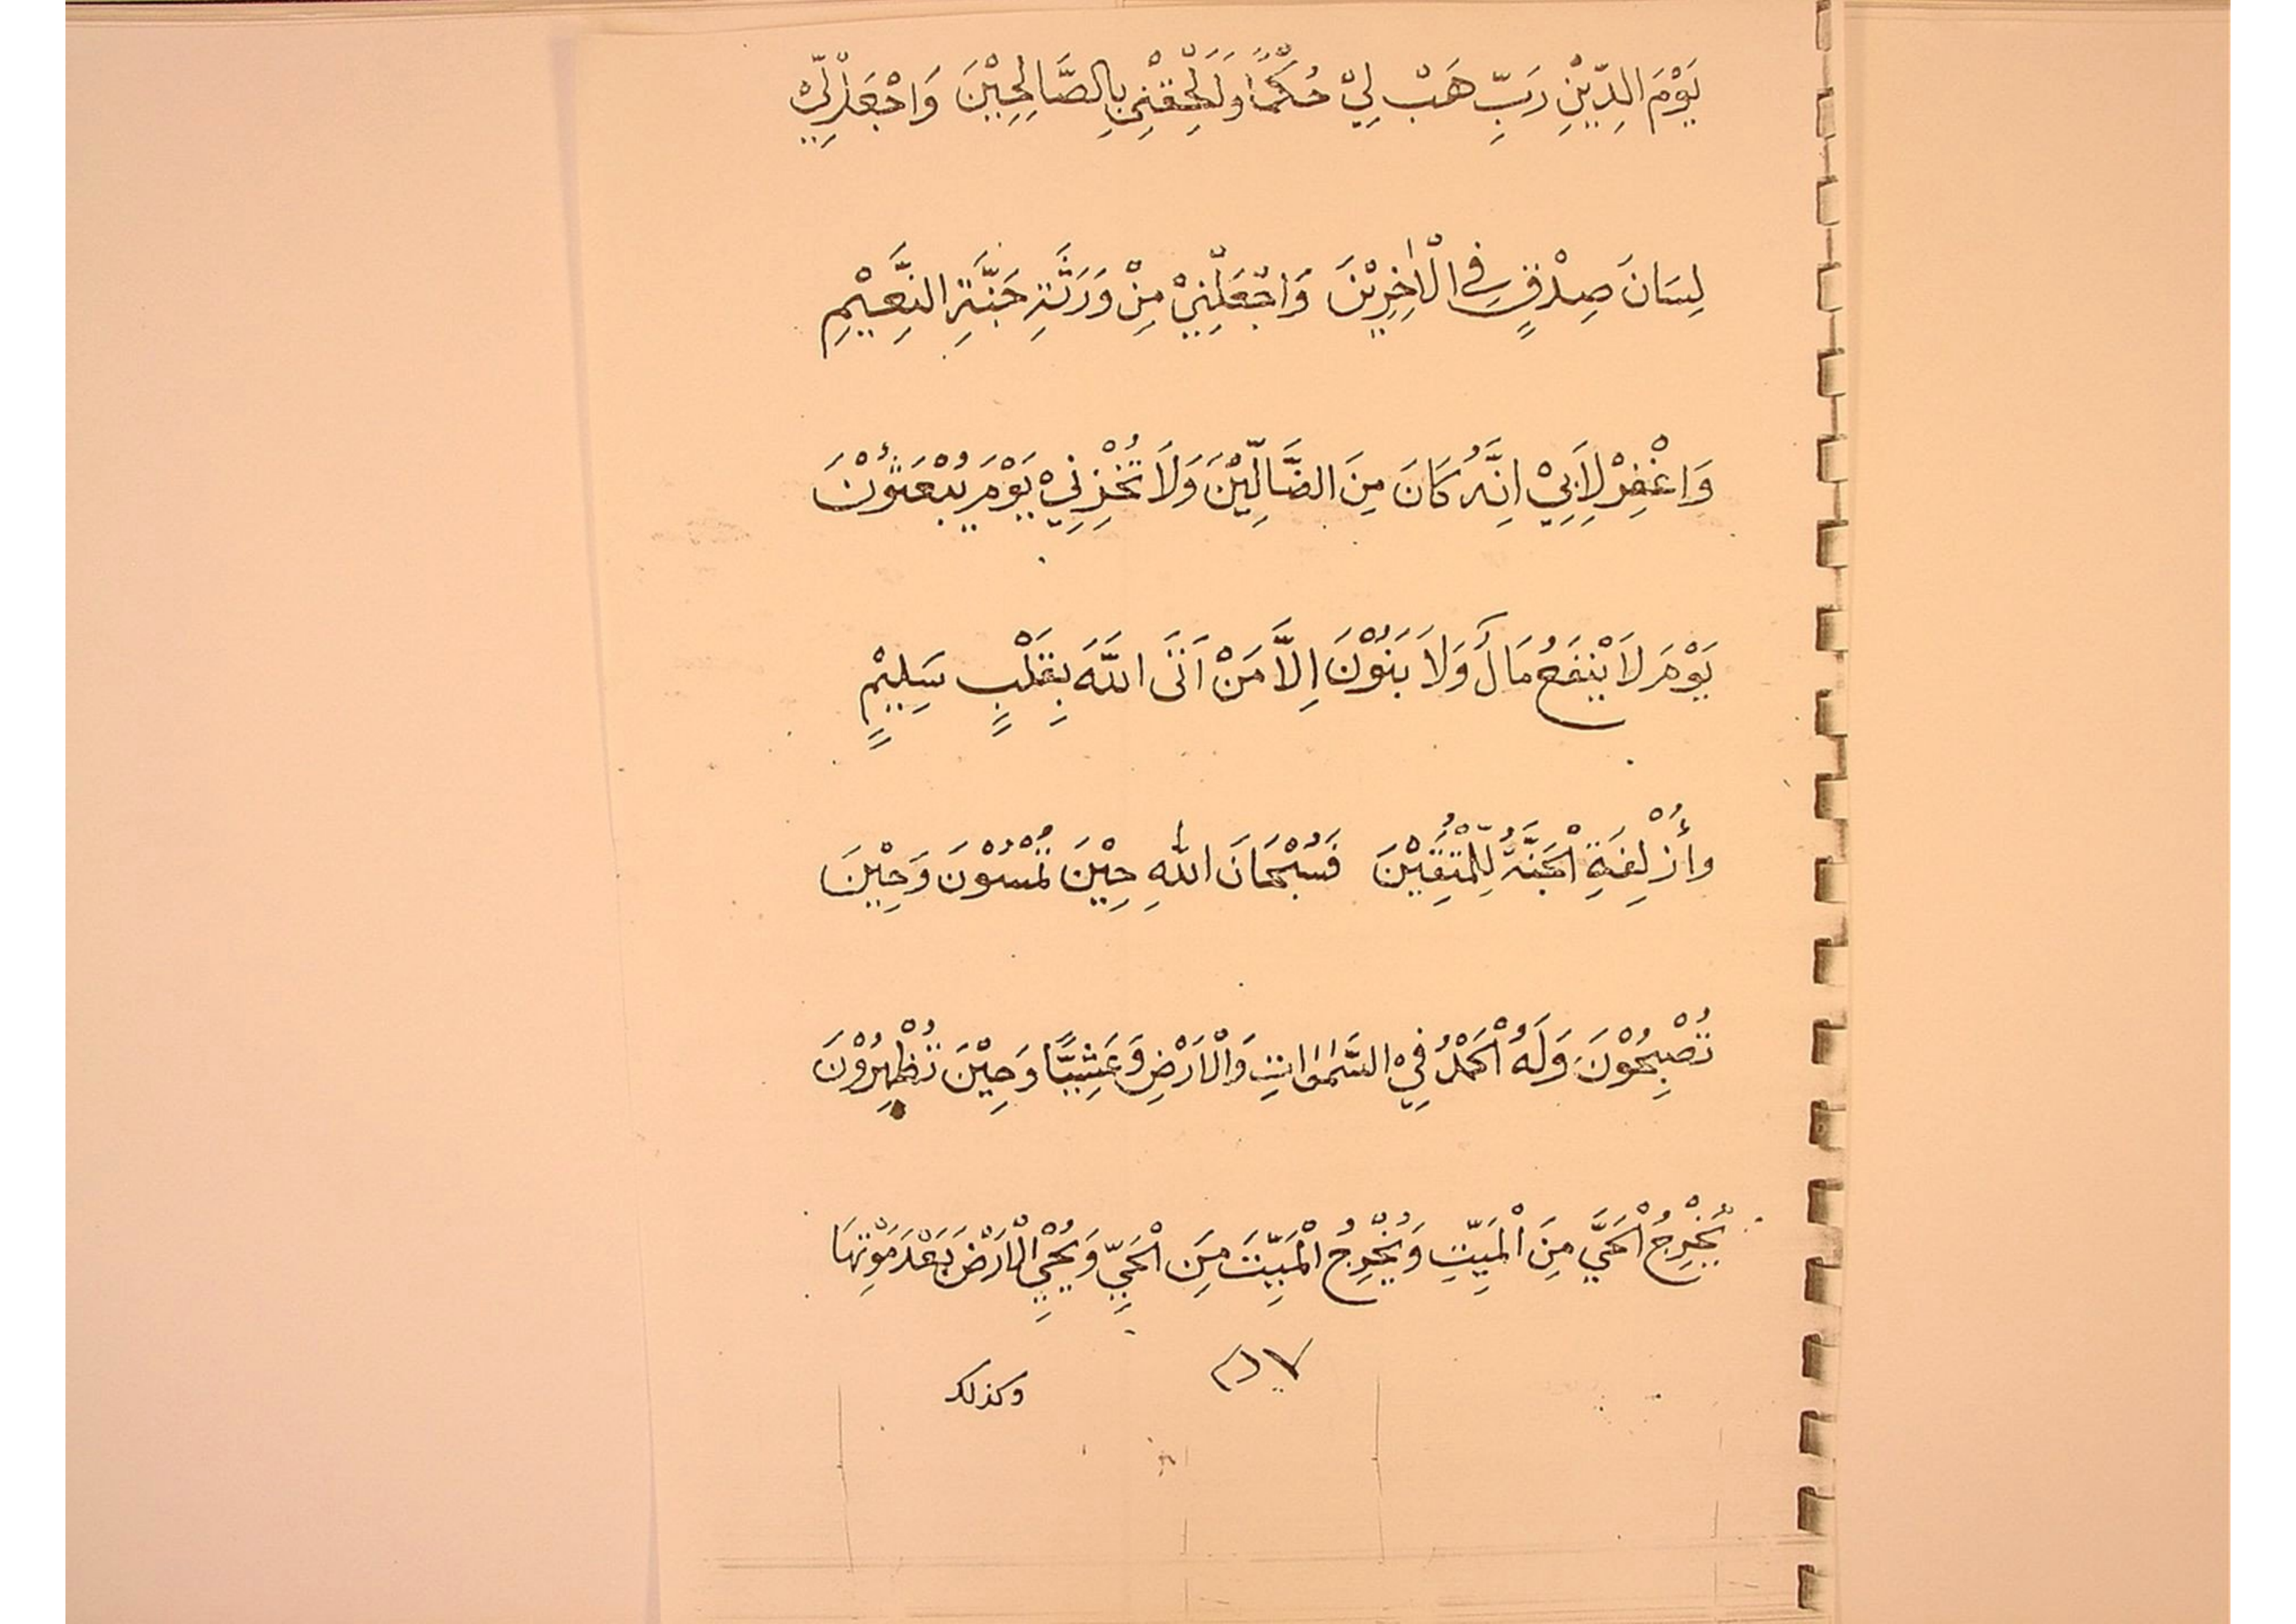 يَوْمَ الدِّيْنِ رَبِّ هَبْ لِيْ حُكْمًا وَّلَحِقْنِيْ بِالصَّالِحِيْنَ وَاجْعَلْ لِّيْ
لِسَانَ صِدْقٍ فِي الْاٰخِرِيْنَ وَاجْعَلْنِيْ مِنْ وَرَثَةِ جَنَّةِ النَّعِيْمِ
وَاغْفِرْ لِاَبِيْ اِنَّهُ كَانَ مِنَ الضَّالِّيْنَ وَلَا تُخْزِنِيْ يَوْمَ يُبْعَثُوْنَ
يَوْمَ لَا يَنْفَعُ مَالٌ وَّلَا بَنُوْنَ اِلَّا مَنْ اَتَى اللّٰهَ بِقَلْبٍ سَلِيْمٍ
وأُزْلِفَةِ الْجَنَّةُ لِلْمُتَّقِيْنَ فَسُبْحَانَ اللّٰهِ حِيْنَ تُمْسُوْنَ وَحِيْنَ
تُصْبِحُوْنَ وَلَهُ الْحَمْدُ فِيْ السَّمٰوٰاتِ وَالْاَرْضِ وَعَشِيًّا وَحِيْنَ تُظْهِرُوْنَ
يُخْرِجُ الْحَيَّ مِنَ الْمَيِّتِ وَيُخْرِجُ الْمَيِّتَ مِنَ الْحَيِّ وَيُحْيِي الْاَرْضَ بَعْدَ مَوْتِهَا
وكذلك